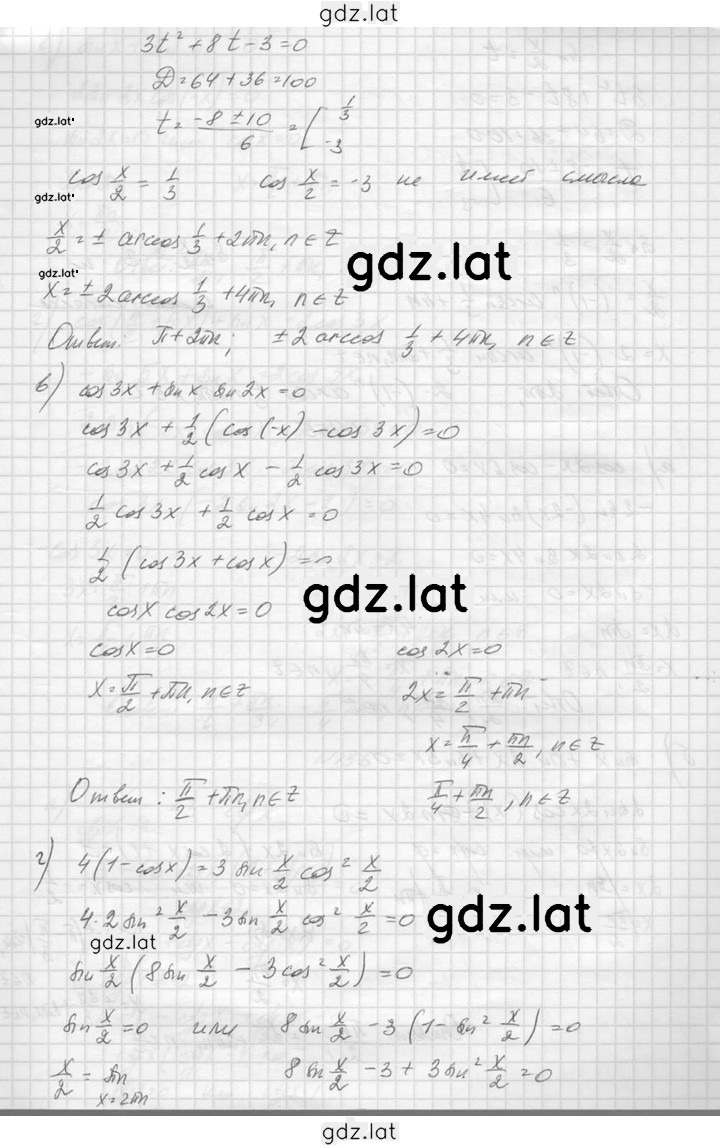 gdz.lat
3t² + 8t - 3 = 0
D = 64 + 36 = 100
gdz.lat
t = (-8 ± 10)/6 = [ 1/3
-3
cos x/2 = 1/3 cos x/2 = -3 не имеет смысла
gdz.lat
x/2 = ± arccos 1/3 + 2πn, n ∈ Z
gdz.lat
gdz.lat
x = ± 2 arccos 1/3 + 4πn, n ∈ Z
Ответ: π + 2πn; ± 2 arccos 1/3 + 4πn, n ∈ Z
в) cos 3x + sin x sin 2x = 0
cos 3x + 1/2 (cos(-x) - cos 3x) = 0
cos 3x + 1/2 cos x - 1/2 cos 3x = 0
1/2 cos 3x + 1/2 cos x = 0
1/2 (cos 3x + cos x) = 0
gdz.lat
cos x cos 2x = 0
cos x = 0 cos 2x = 0
x = π/2 + πn, n ∈ Z 2x = π/2 + πn
x = π/4 + πn/2, n ∈ Z
Ответ: π/2 + πn, n ∈ Z π/4 + πn/2, n ∈ Z
г) 4(1 - cos x) = 3 sin x/2 cos² x/2
4·2 sin² x/2 - 3 sin x/2 cos² x/2 = 0
gdz.lat
gdz.lat
sin x/2 (8 sin x/2 - 3 cos² x/2) = 0
sin x/2 = 0 или 8 sin x/2 - 3 (1 - sin² x/2) = 0
x/2 = πn 8 sin x/2 - 3 + 3 sin² x/2 = 0
x = 2πn
gdz.lat